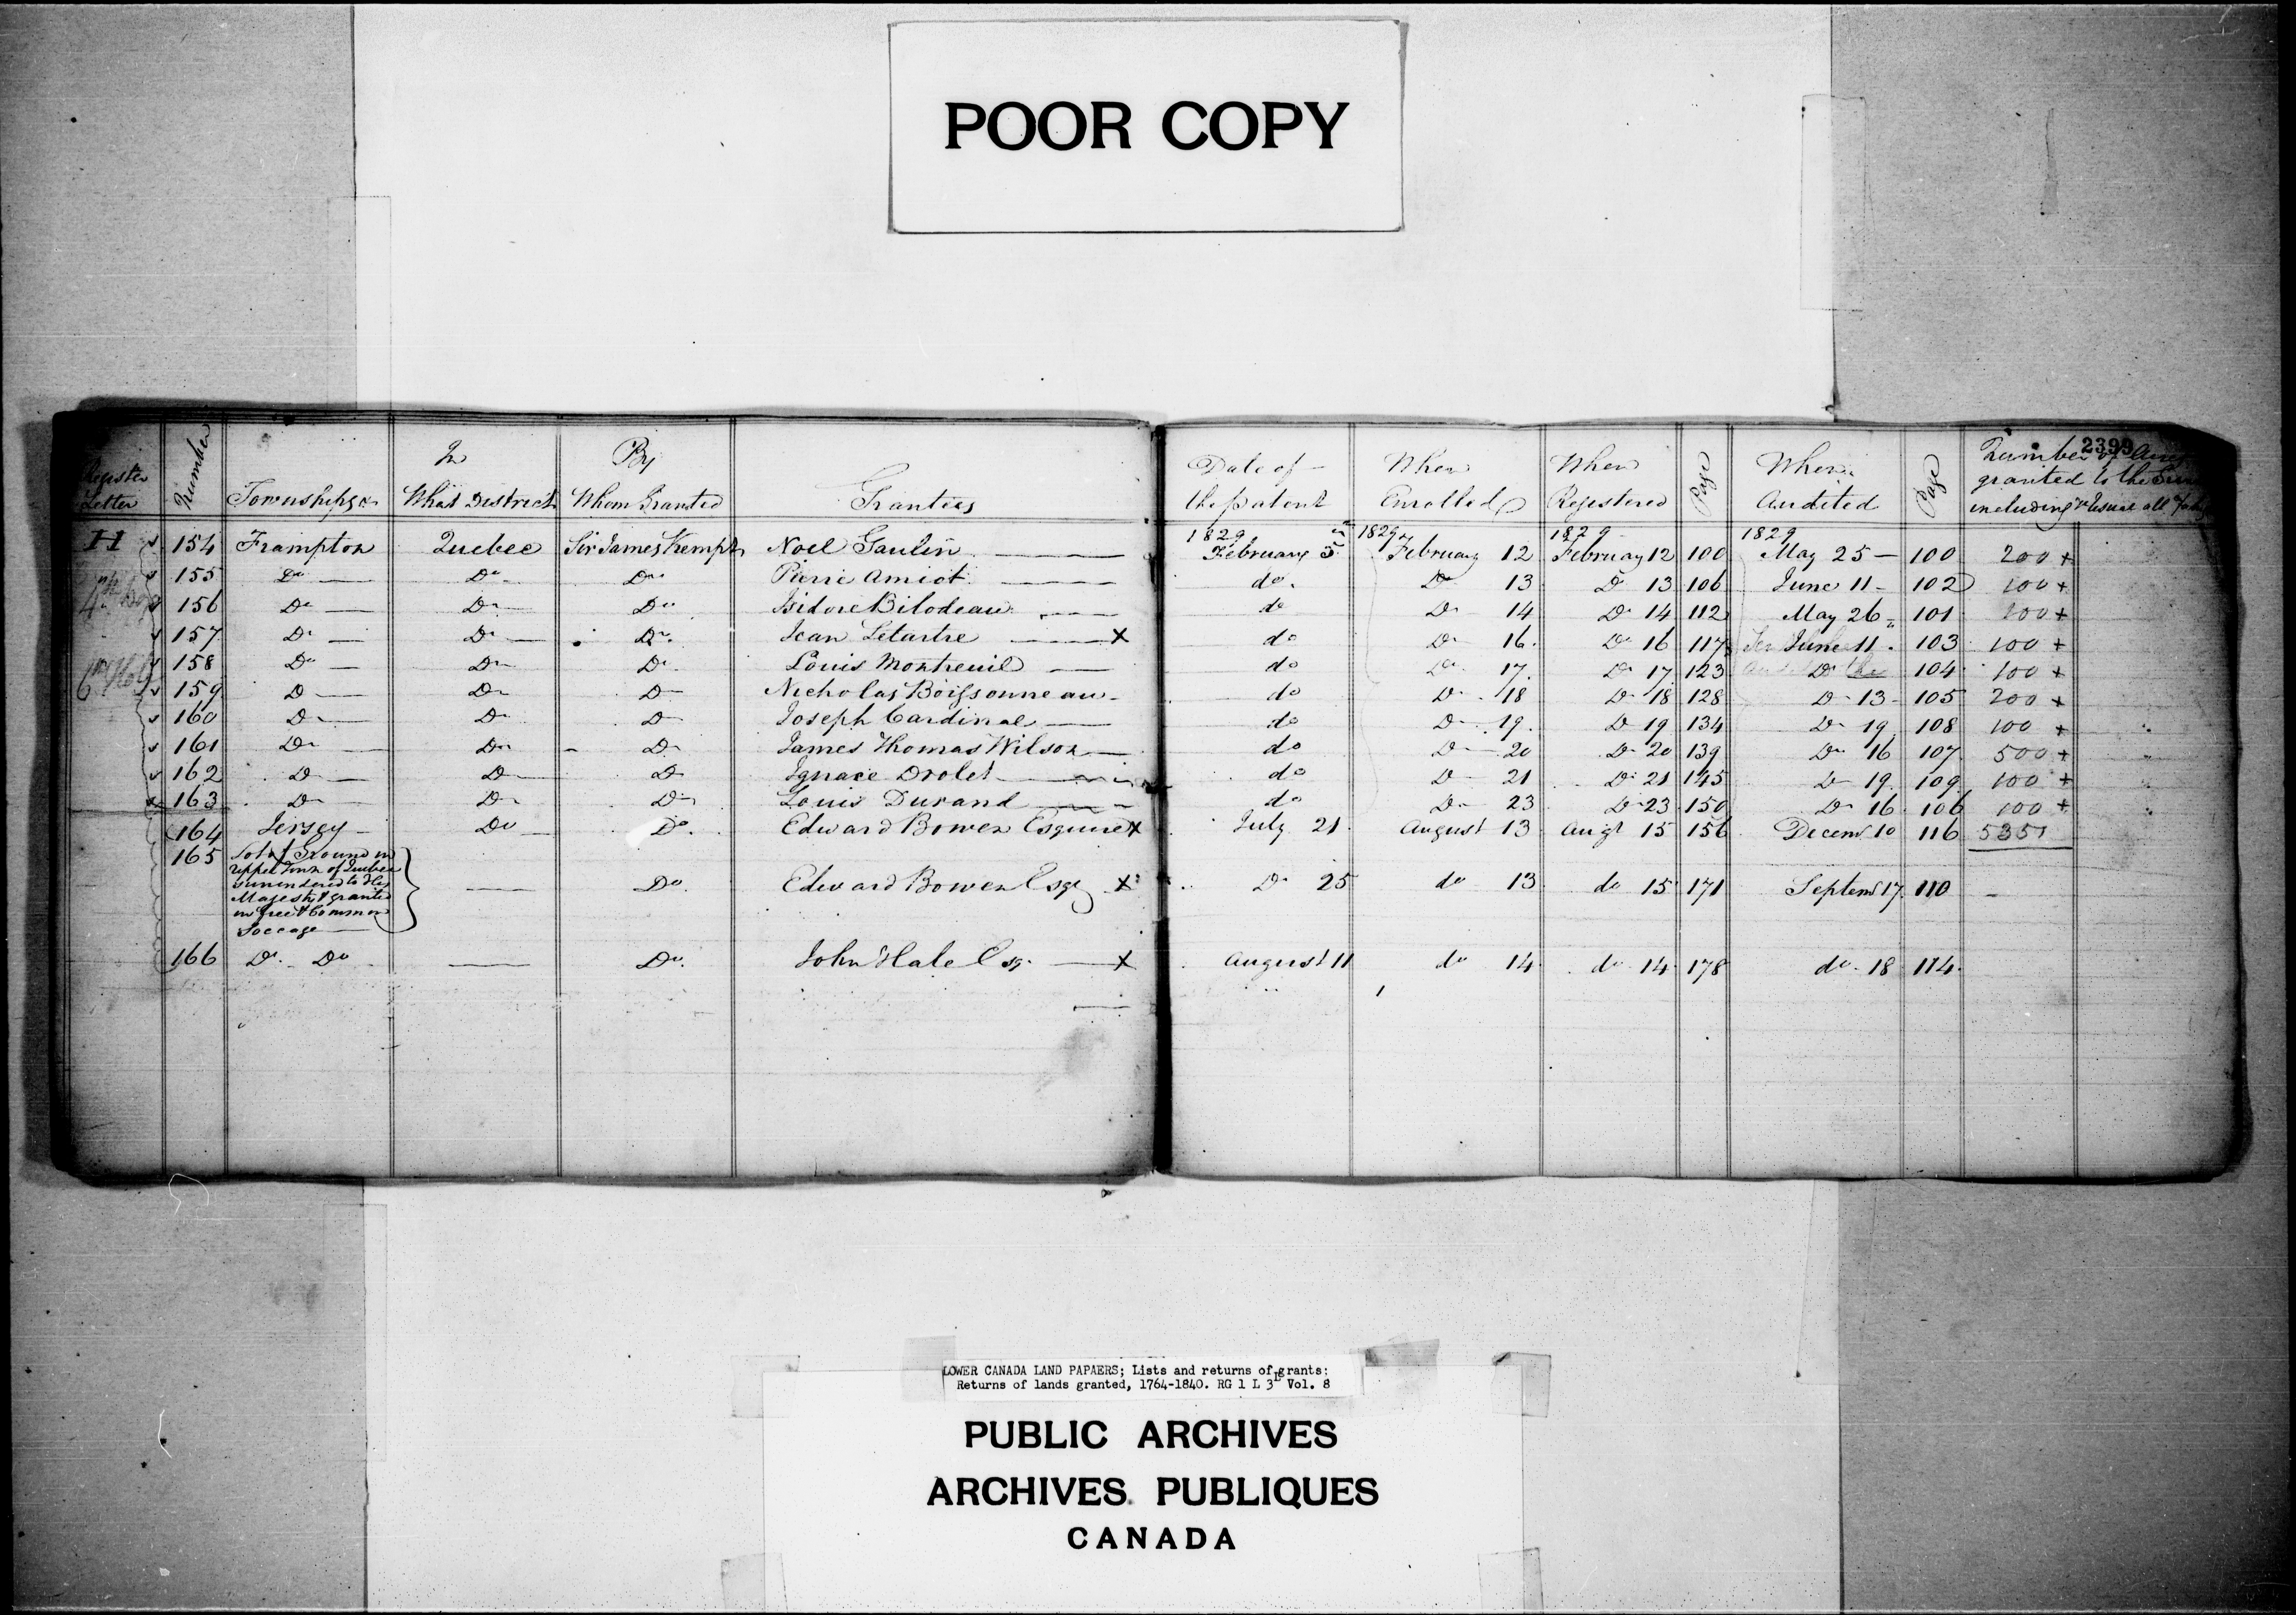 POOR COPY
2399
Register Letter | Number | Townships &c | In What District | By Whom Granted | Grantees | Date of the patent | When Enrolled | When Registered | Page | When Audited | Page | Number of Acres granted to the including
1829 | 1829 | 1829 | 1829
H | 154 | Frampton | Quebec | Sir James Kempt | Noel Gaulin | February 5 | February 12 | February 12 | 100 | May 25 | 100 | 200 +
155 | Do | Do | Do | Pierre Amiot | do. | Do 13 | Do 13 | 106 | June 11 | 102 | 100 +
156 | Do | Do | Do | Isidore Bilodeau | do | Do 14 | Do 14 | 112 | May 26 | 101 | 100 +
157 | Do | Do | Do | Jean Letartre x | do | Do 16. | Do 16 | 117 | June 11 | 103 | 100 +
158 | Do | Do | Do | Louis Montreuil | do | Do 17. | Do 17 | 123 | Do | 104 | 100 +
159 | Do | Do | Do | Nicholas Boissonneau | do | Do 18 | Do 18 | 128 | Do 13 | 105 | 200 +
160 | Do | Do | Do | Joseph Cardinal | do | Do 19. | Do 19 | 134 | Do 19 | 108 | 100 +
161 | Do | Do | Do | James Thomas Wilson | do | Do 20 | Do 20 | 139 | Do 16 | 107 | 500 +
162 | Do | Do | Do | Ignace Drolet | do | Do 21 | Do 21 | 145 | Do 19 | 109 | 100 +
163 | Do | Do | Do | Louis Durand | do | Do 23 | Do 23 | 150 | Do 16 | 106 | 100 +
164 | Jersey | Do | Do. | Edward Bowen Esquire x | July 21 | August 13 | Augt 15 | 156 | Decemr 10 | 116 | 5351
165 | Lot of Ground in Upper Town of Quebec surrendered to His Majesty & granted in free & Common Soccage | Do | Edward Bowen Esqr x | Do 25 | do 13 | do 15 | 171 | Septemr 17 | 110
166 | Do. Do | Do. | John Hale Esqr x | August 11 | do 14 | do 14 | 178 | do 18 | 114
LOWER CANADA LAND PAPAERS; Lists and returns of grants:
Returns of lands granted, 1764-1840. RG 1 L 3L Vol. 8
PUBLIC ARCHIVES
ARCHIVES PUBLIQUES
CANADA